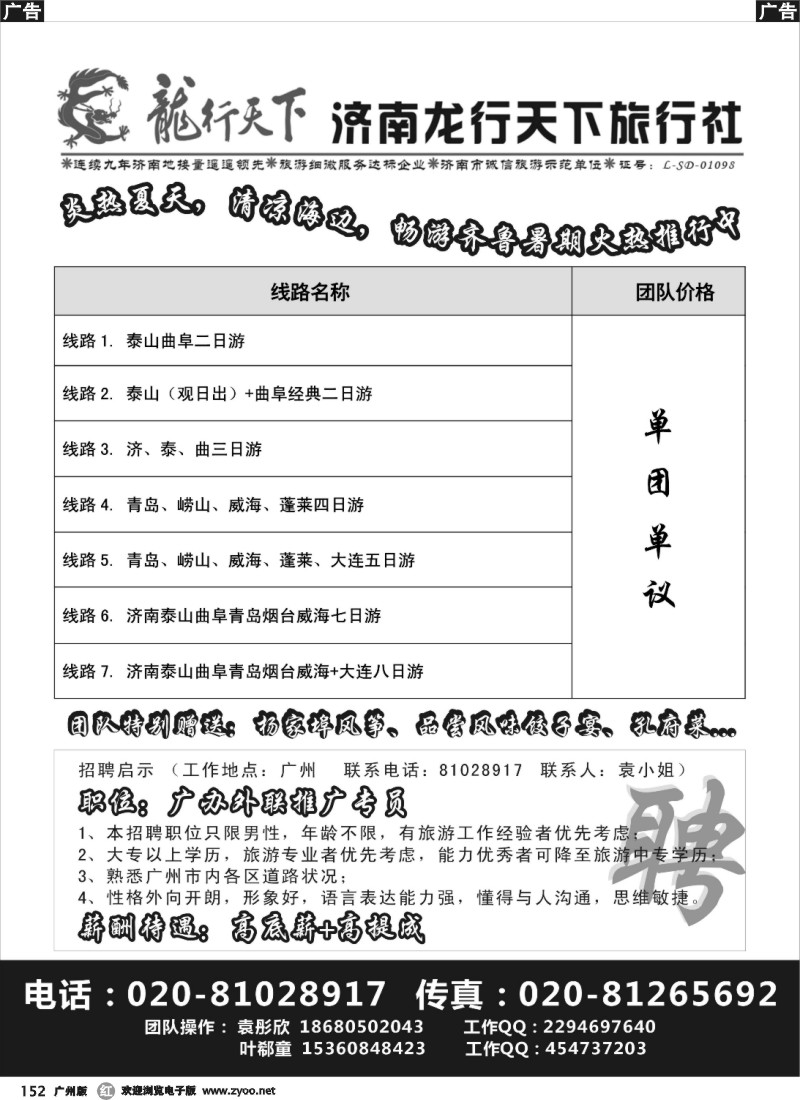 广告 广告
龍行天下 济南龙行天下旅行社
※连续九年济南地接量遥遥领先※旅游细微服务达标企业※济南市诚信旅游示范单位※证号：L-SD-01098
炎热夏天，清凉海边，畅游齐鲁暑期火热推行中
线路名称 团队价格
线路 1. 泰山曲阜二日游
线路 2. 泰山（观日出）+曲阜经典二日游
线路 3. 济、泰、曲三日游
线路 4. 青岛、崂山、威海、蓬莱四日游
线路 5. 青岛、崂山、威海、蓬莱、大连五日游
线路 6. 济南泰山曲阜青岛烟台威海七日游
线路 7. 济南泰山曲阜青岛烟台威海+大连八日游
单团单议
团队特别赠送：杨家埠风筝、品尝风味饺子宴、孔府菜...
招聘启示 （工作地点：广州 联系电话：81028917 联系人：袁小姐）
职位：广办外联推广专员
1、本招聘职位只限男性，年龄不限，有旅游工作经验者优先考虑；
2、大专以上学历，旅游专业者优先考虑，能力优秀者可降至旅游中专学历；
3、熟悉广州市内各区道路状况；
4、性格外向开朗，形象好，语言表达能力强，懂得与人沟通，思维敏捷。
薪酬待遇：高底薪+高提成
聘
电话：020-81028917 传真：020-81265692
团队操作： 袁彤欣 18680502043 工作QQ：2294697640
叶郗童 15360848423 工作QQ：454737203
152 广州版 红 欢迎浏览电子版 www.zyoo.net